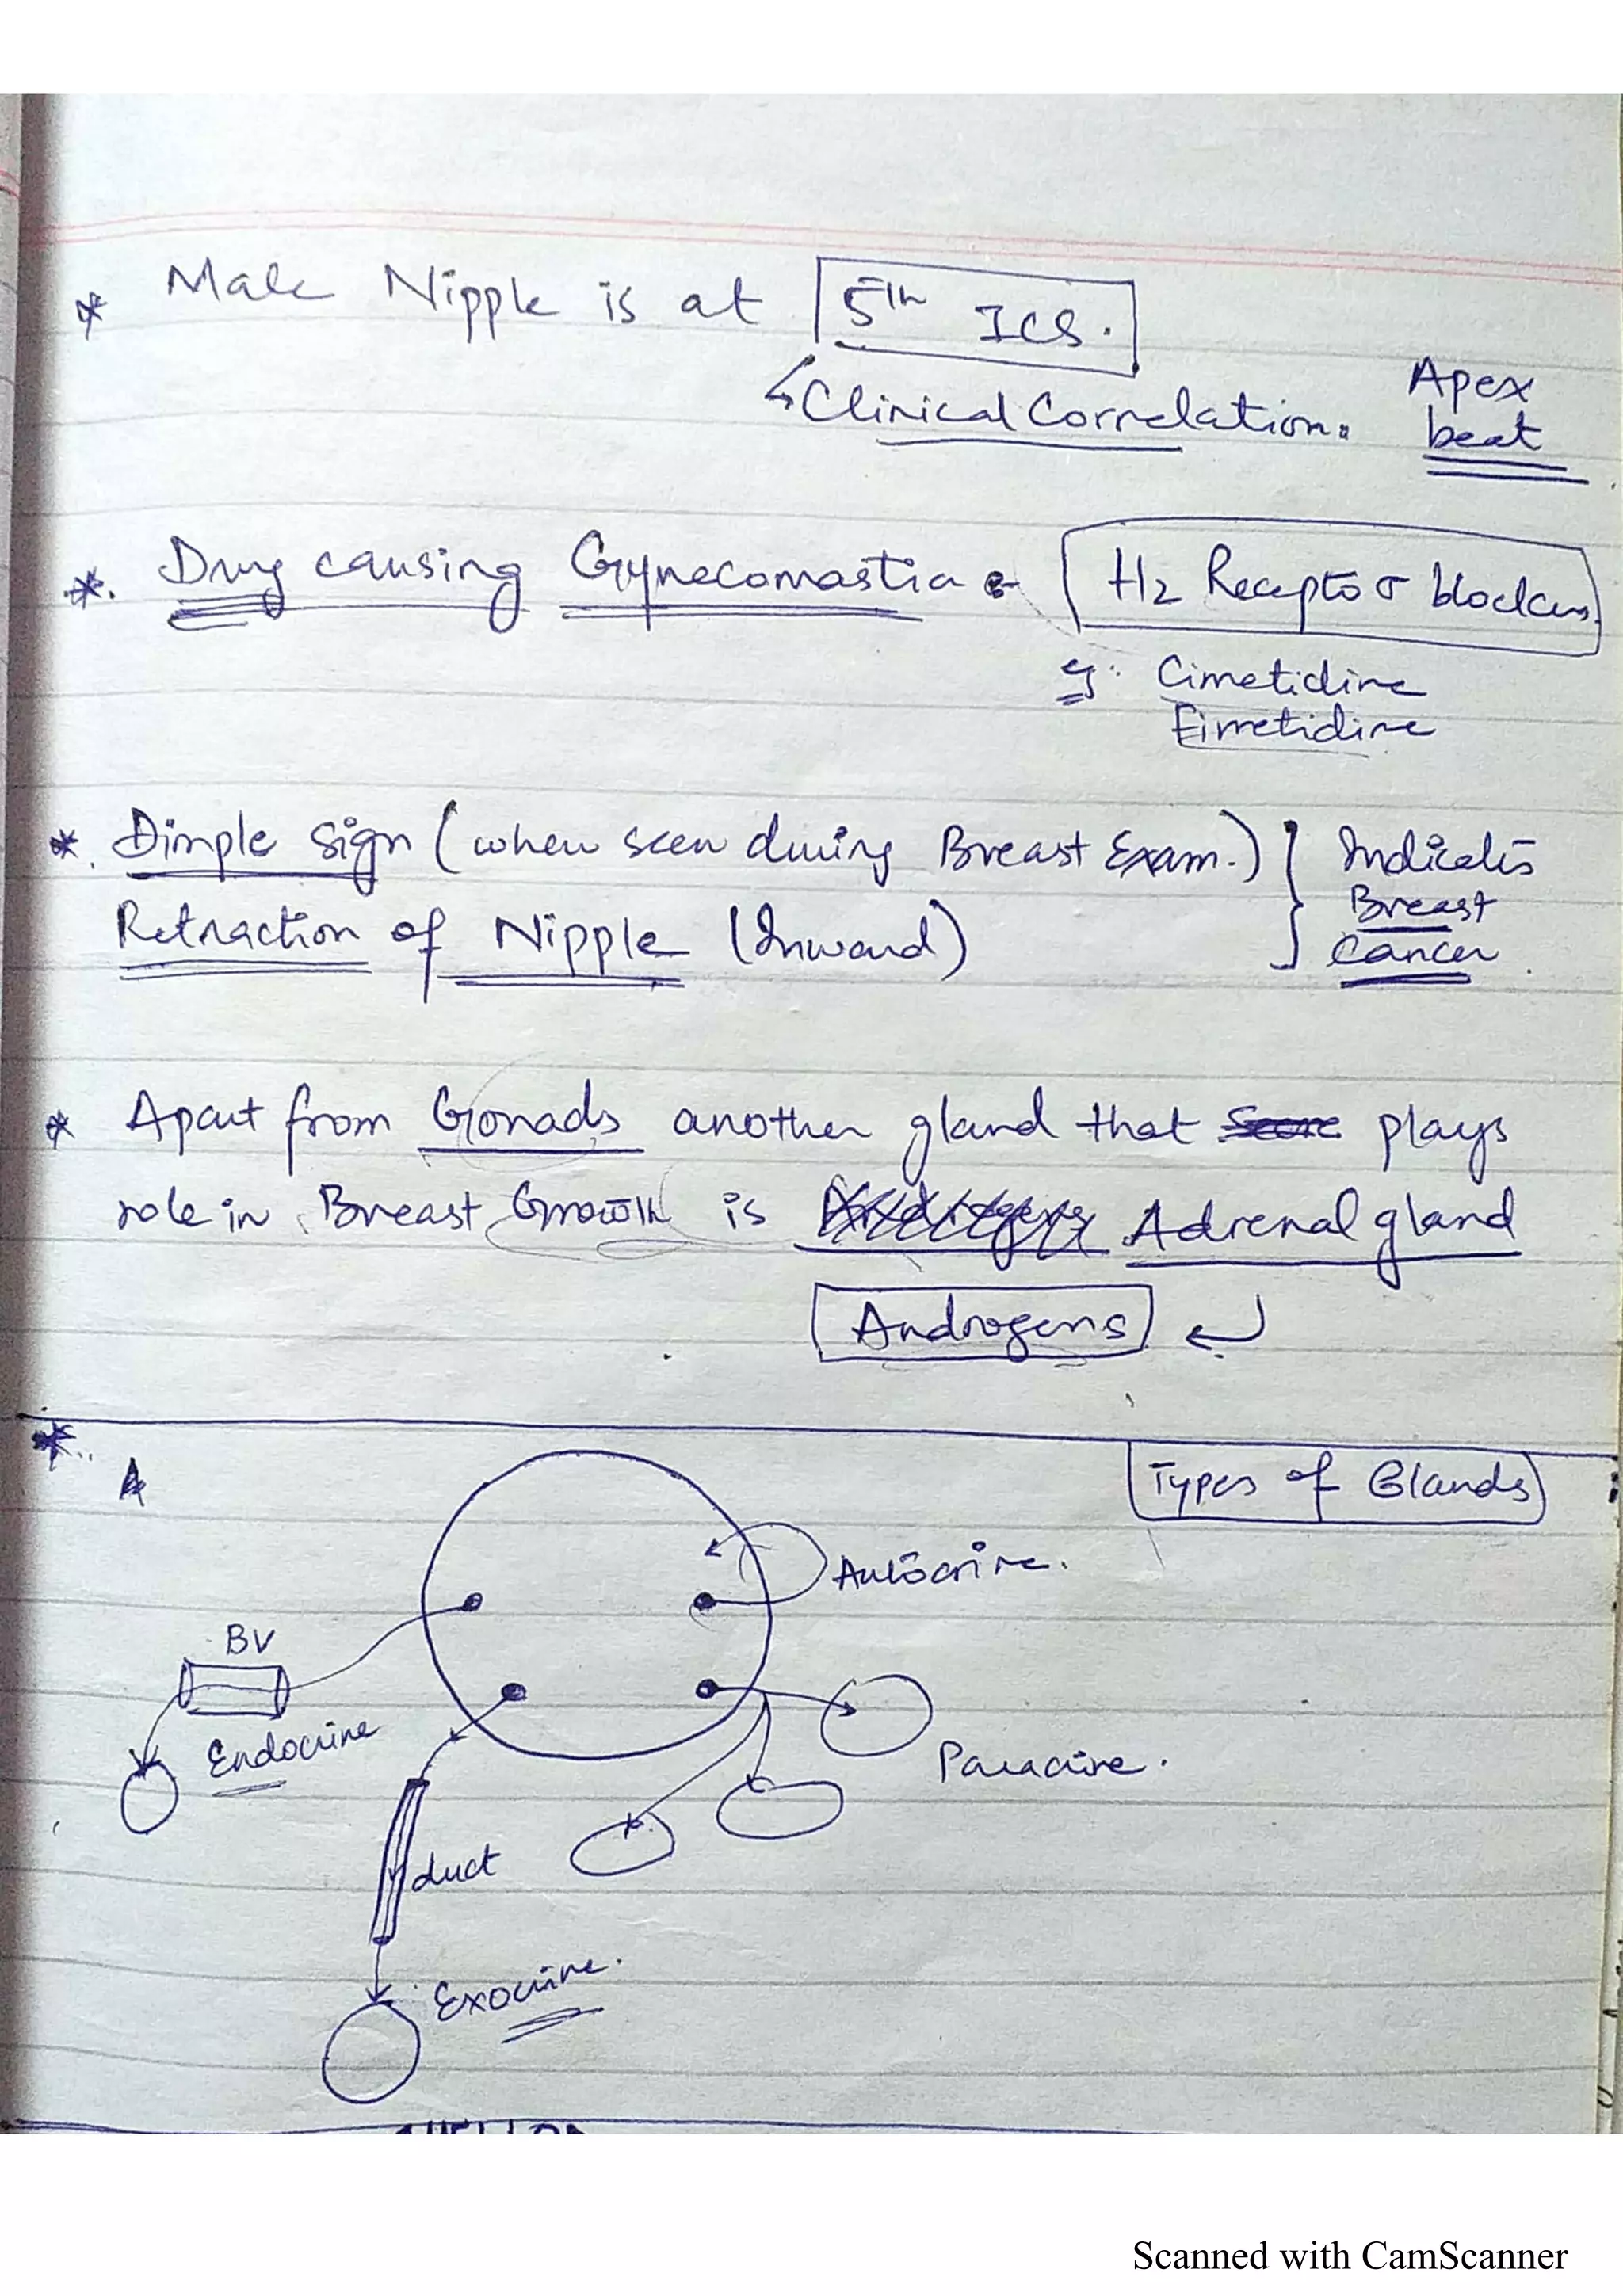 * Male Nipple is at 5th ICS.
↳ Clinical Correlation. Apex beat
*. Drug causing Gynecomastia :- H2 Receptor blockers.
eg: Cimetidine
Fimetidine
*. Dimple sign (when seen during Breast Exam.) } Indicates
Retraction of Nipple (Inward) Breast Cancer.
* Apart from Gonads another gland that plays
role in Breast Growth is Adrenal gland
Androgens ↵
*.. Types of Glands
Autocrine.
BV
Endocrine
Paracrine.
duct
Exocrine.
Scanned with CamScanner